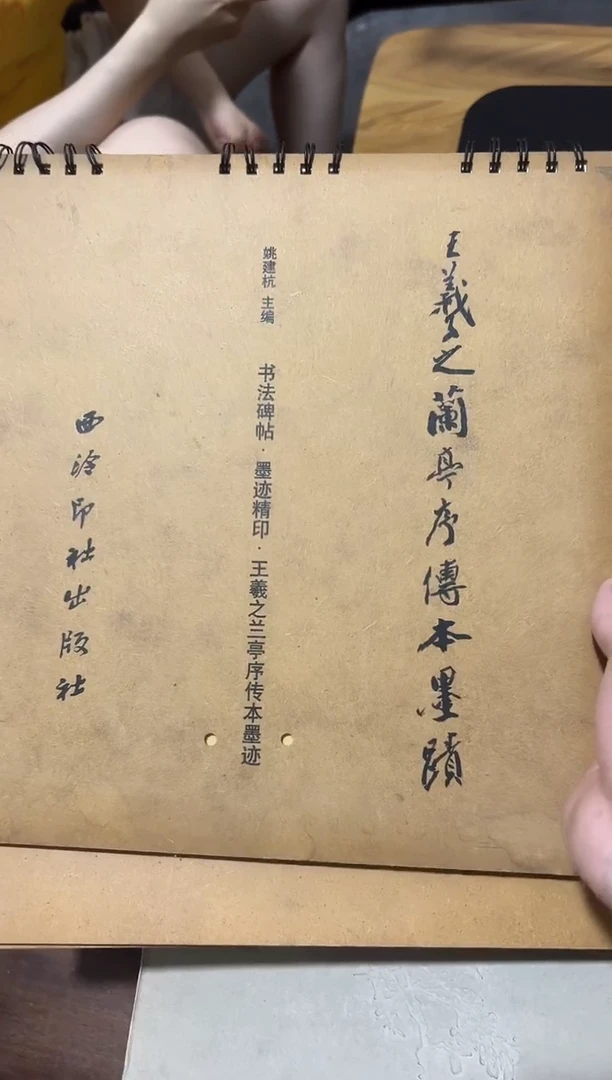 王羲之蘭亭序傳本墨蹟
姚建杭 主编
书法碑帖·墨迹精印·王羲之兰亭序传本墨迹
西泠印社出版社